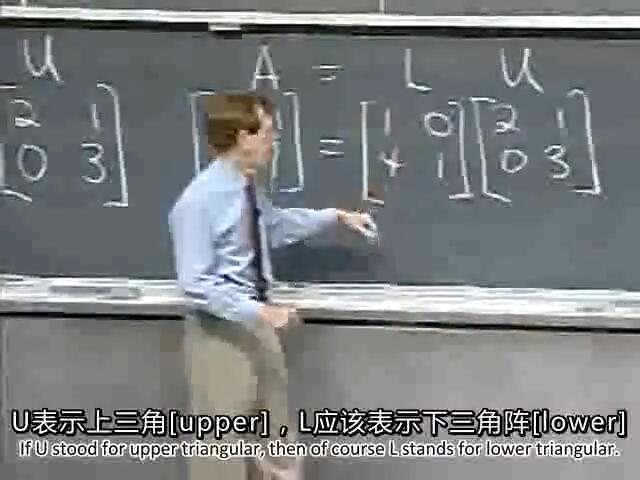 U A = L U
2 1 = 1 0 2 1
0 3 4 1 0 3
U表示上三角[upper]，L应该表示下三角阵[lower]
If U stood for upper triangular, then of course L stands for lower triangular.